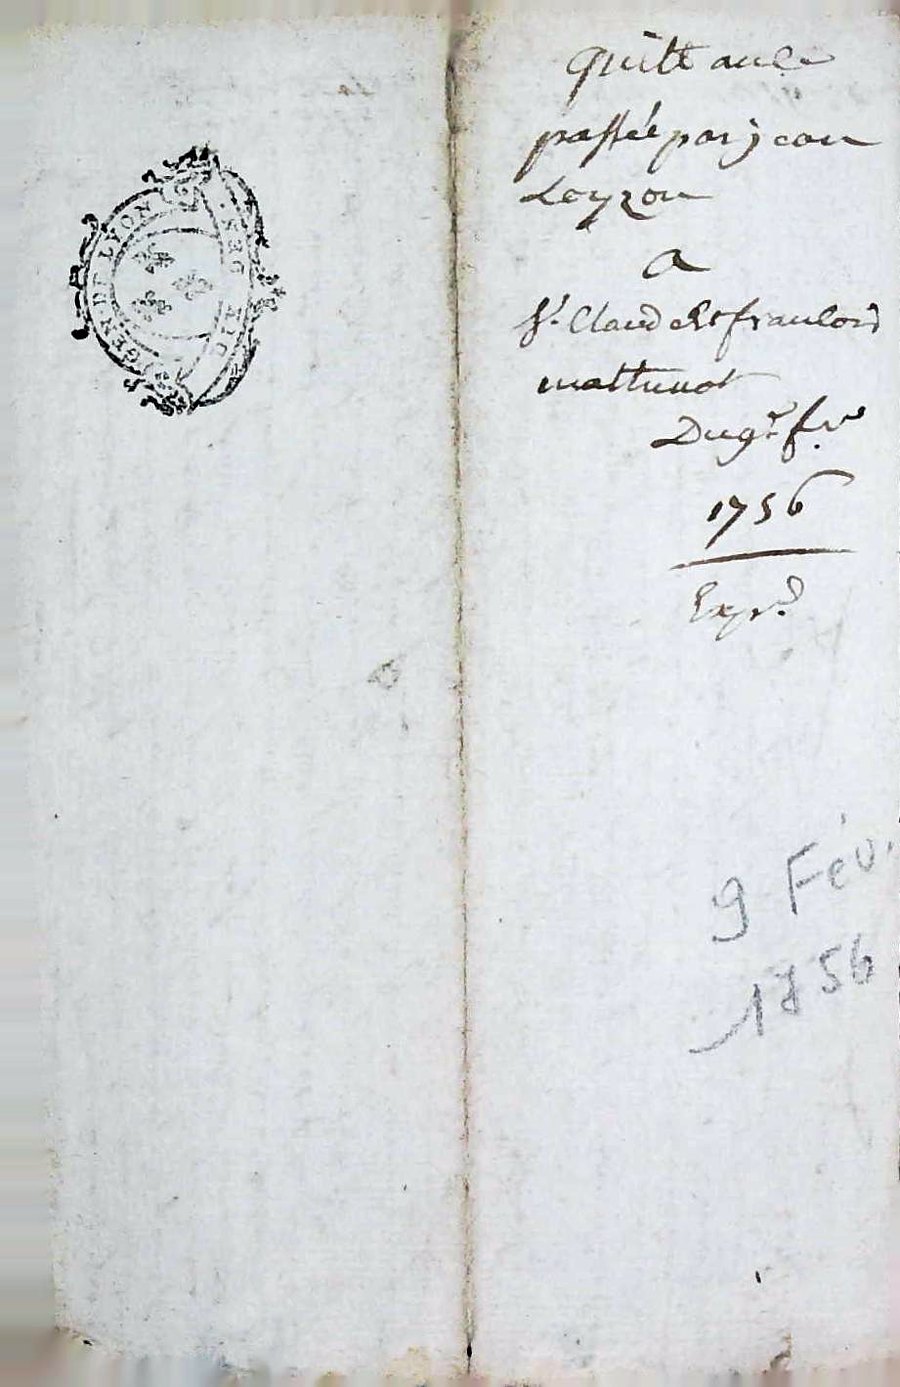 GEN DE LYON
quittance
passée par jean
Leyzon
a
Sr. Claude et francois
mattunot
Du 9e. fer
1756
Expd.
9 Fév.
1756